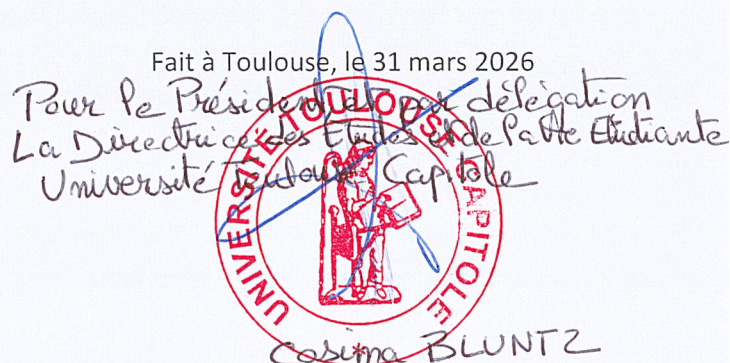 Fait à Toulouse, le 31 mars 2026
Pour le Président et par délégation
La Directrice des Etudes et de la Vie Etudiante
Université Toulouse Capitole
UNIVERSITÉ TOULOUSE CAPITOLE
Cosima BLUNTZ